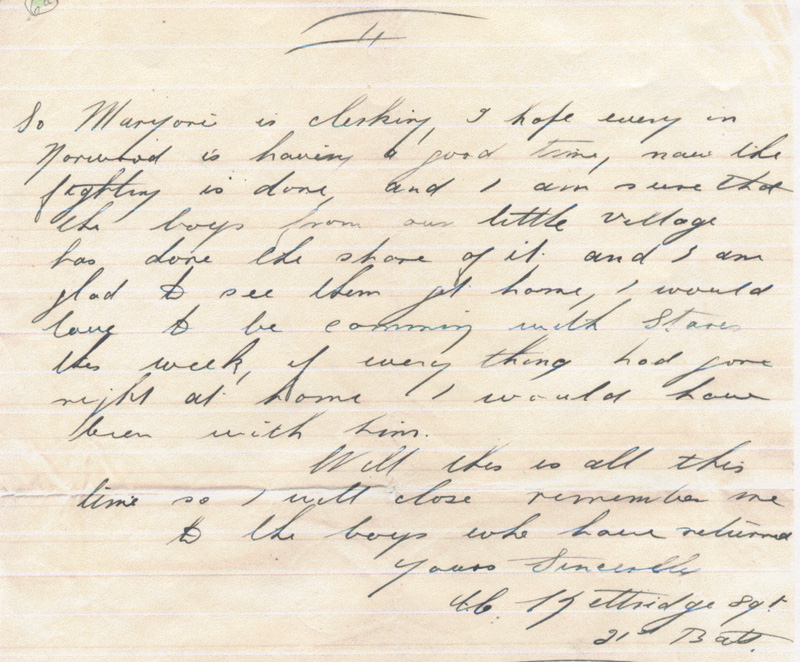 6a
11
So Marjorie is clerking, I hope every in
Norwood is having a good time, now the
fighting is done, and I am sure that
the boys from our little village
has done the share of it. and I am
glad to see them get home, I would
love to be comming with
this week, if every thing had gone
right at home I would have
been with him.
Well this is all this
time so I will close remember me
to the boys who have returned
Yours
Kettridge Sgt
21st Batt.